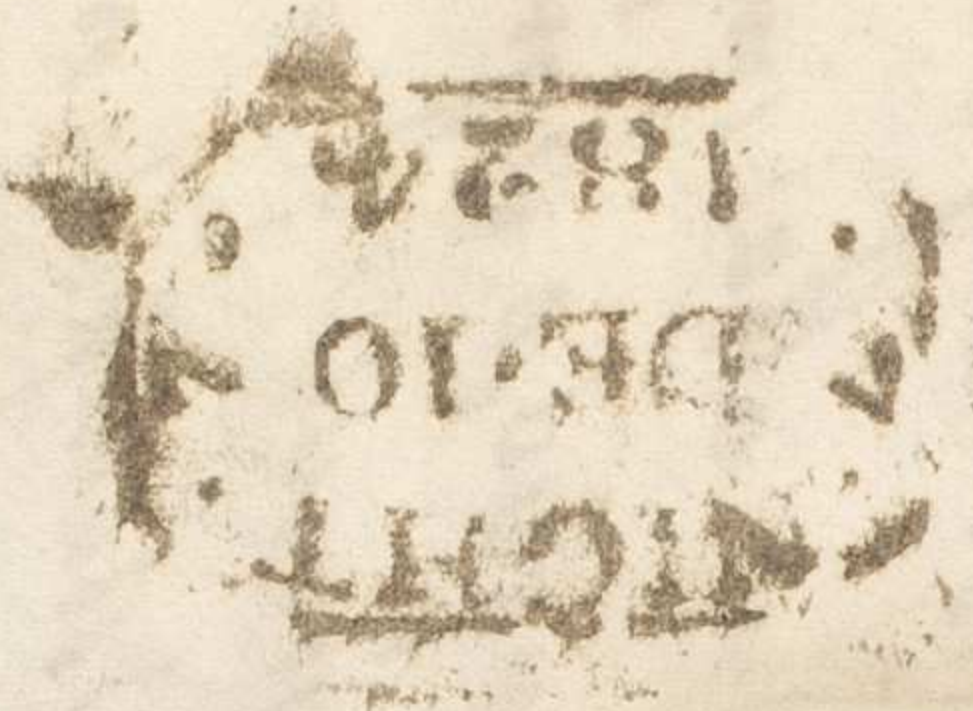 7 · NIGHT · 7
DE · 10
1824